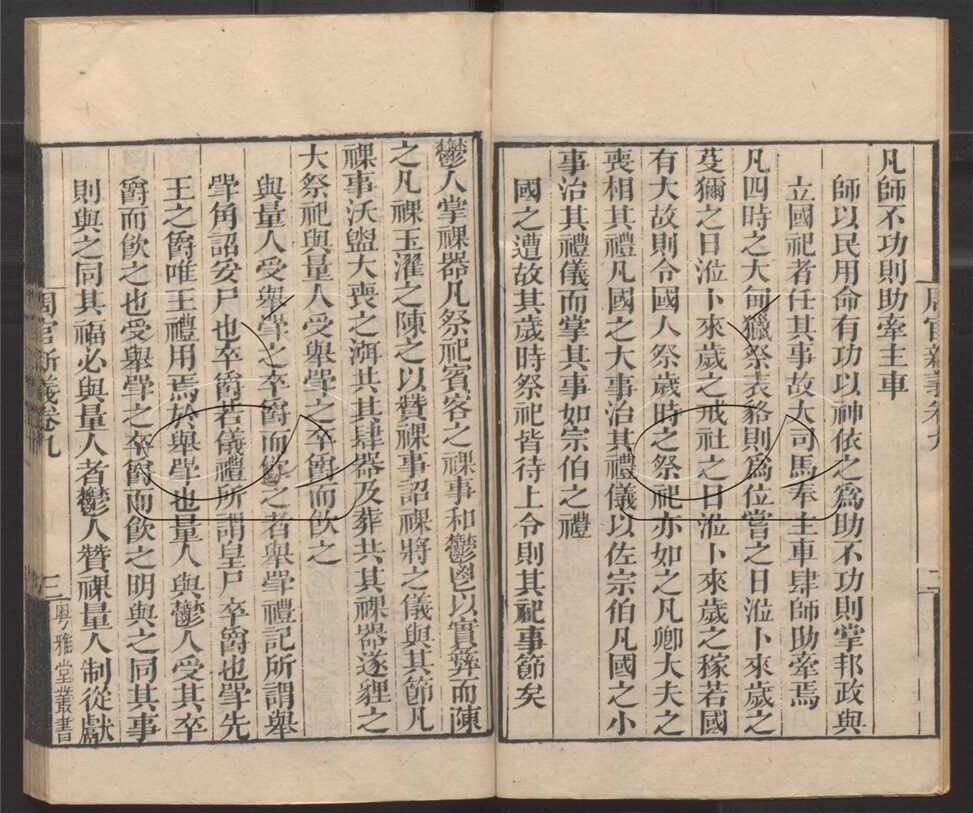 凡師不功則助牽主車
師以民用命有功以神依之爲助不功則掌邦政與
立國祀者任其事故大司馬奉主車肆師助牽焉
凡四時之大甸獵祭表貉則爲位嘗之日涖卜來歲之
芟獮之日涖卜來歲之戒社之日涖卜來歲之稼若國
有大故則令國人祭歲時之祭祀亦如之凡卿大夫之
喪相其禮凡國之大事治其禮儀以佐宗伯凡國之小
事治其禮儀而掌其事如宗伯之禮
國之遭故其歲時祭祀皆待上令則其祀事節矣
周官新義卷九
二
鬱人掌祼器凡祭祀賓客之祼事和鬱鬯以實彝而陳
之凡祼玉濯之陳之以贊祼事詔祼將之儀與其節凡
祼事沃盥大喪之渳共其肆器及葬共其祼器遂貍之
大祭祀與量人受舉斝之卒爵而飲之
與量人受舉斝之卒爵而飲之者舉斝禮記所謂舉
斝角詔妥尸也卒爵若儀禮所謂皇尸卒爵也斝先
王之爵唯王禮用焉於舉斝也量人與鬱人受其卒
爵而飲之也受舉斝之卒爵而飲之明與之同其事
則與之同其福必與量人者鬱人贊祼量人制從獻
周官新義卷九
三
粵雅堂叢書